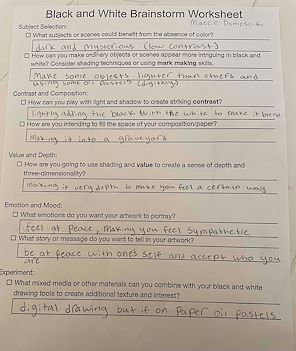 Black and White Brainstorm Worksheet
Subject Selection:
☐ What subjects or scenes could benefit from the absence of color?
dark and mysterious (low contrast)
☐ How can you make ordinary objects or scenes appear more intriguing in black and
white? Consider shading techniques or using mark making skills.
Make some objects lighter than others and
using some oil pastels (digitaly)
Contrast and Composition:
☐ How can you play with light and shadow to create striking contrast?
lightly adding the black with the white to make it blend
☐ How are you intending to fill the space of your composition/paper?
Making it into a graveyard
Value and Depth:
☐ How are you going to use shading and value to create a sense of depth and
three-dimensionality?
making it very depth to make you feel a certain way
Emotion and Mood:
☐ What emotions do you want your artwork to portray?
feel at peace, making you feel sympathetic
☐ What story or message do you want to tell in your artwork?
be at peace with ones self and accept who you
are
Experiment:
☐ What mixed media or other materials can you combine with your black and white
drawing tools to create additional texture and interest?
digital drawing but if on paper oil pastels